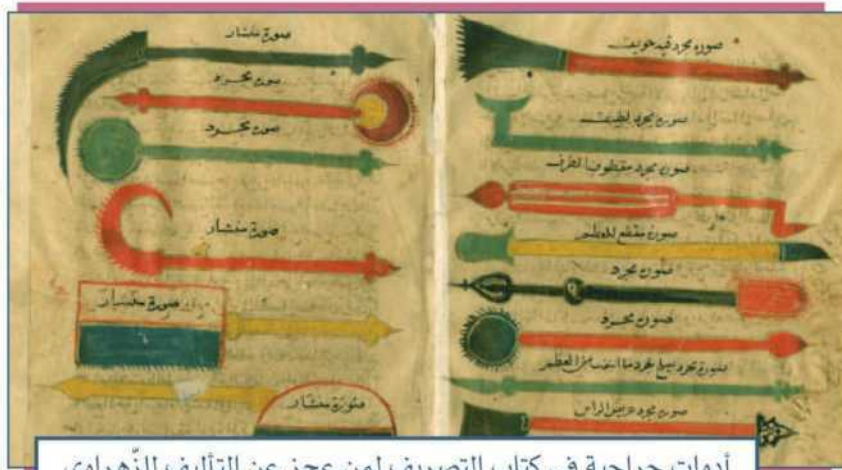 صورة مجرد فيه تجويف
صورة مجرد لطيف
صورة مجرد مقطوف الطرف
صورة مقطع للعظم
صورة مجرد
صورة مجرد
صورة مجرد يصلح لجرد ما من العظم
صورة مجرد عريض الراس
صورة منشار
صورة مجرد
صورة مجرد
صورة منشار
صورة منشار
صورة منشار
أدوات جراحية في كتاب التصريف لمن عجز عن التأليف للزّهراوي